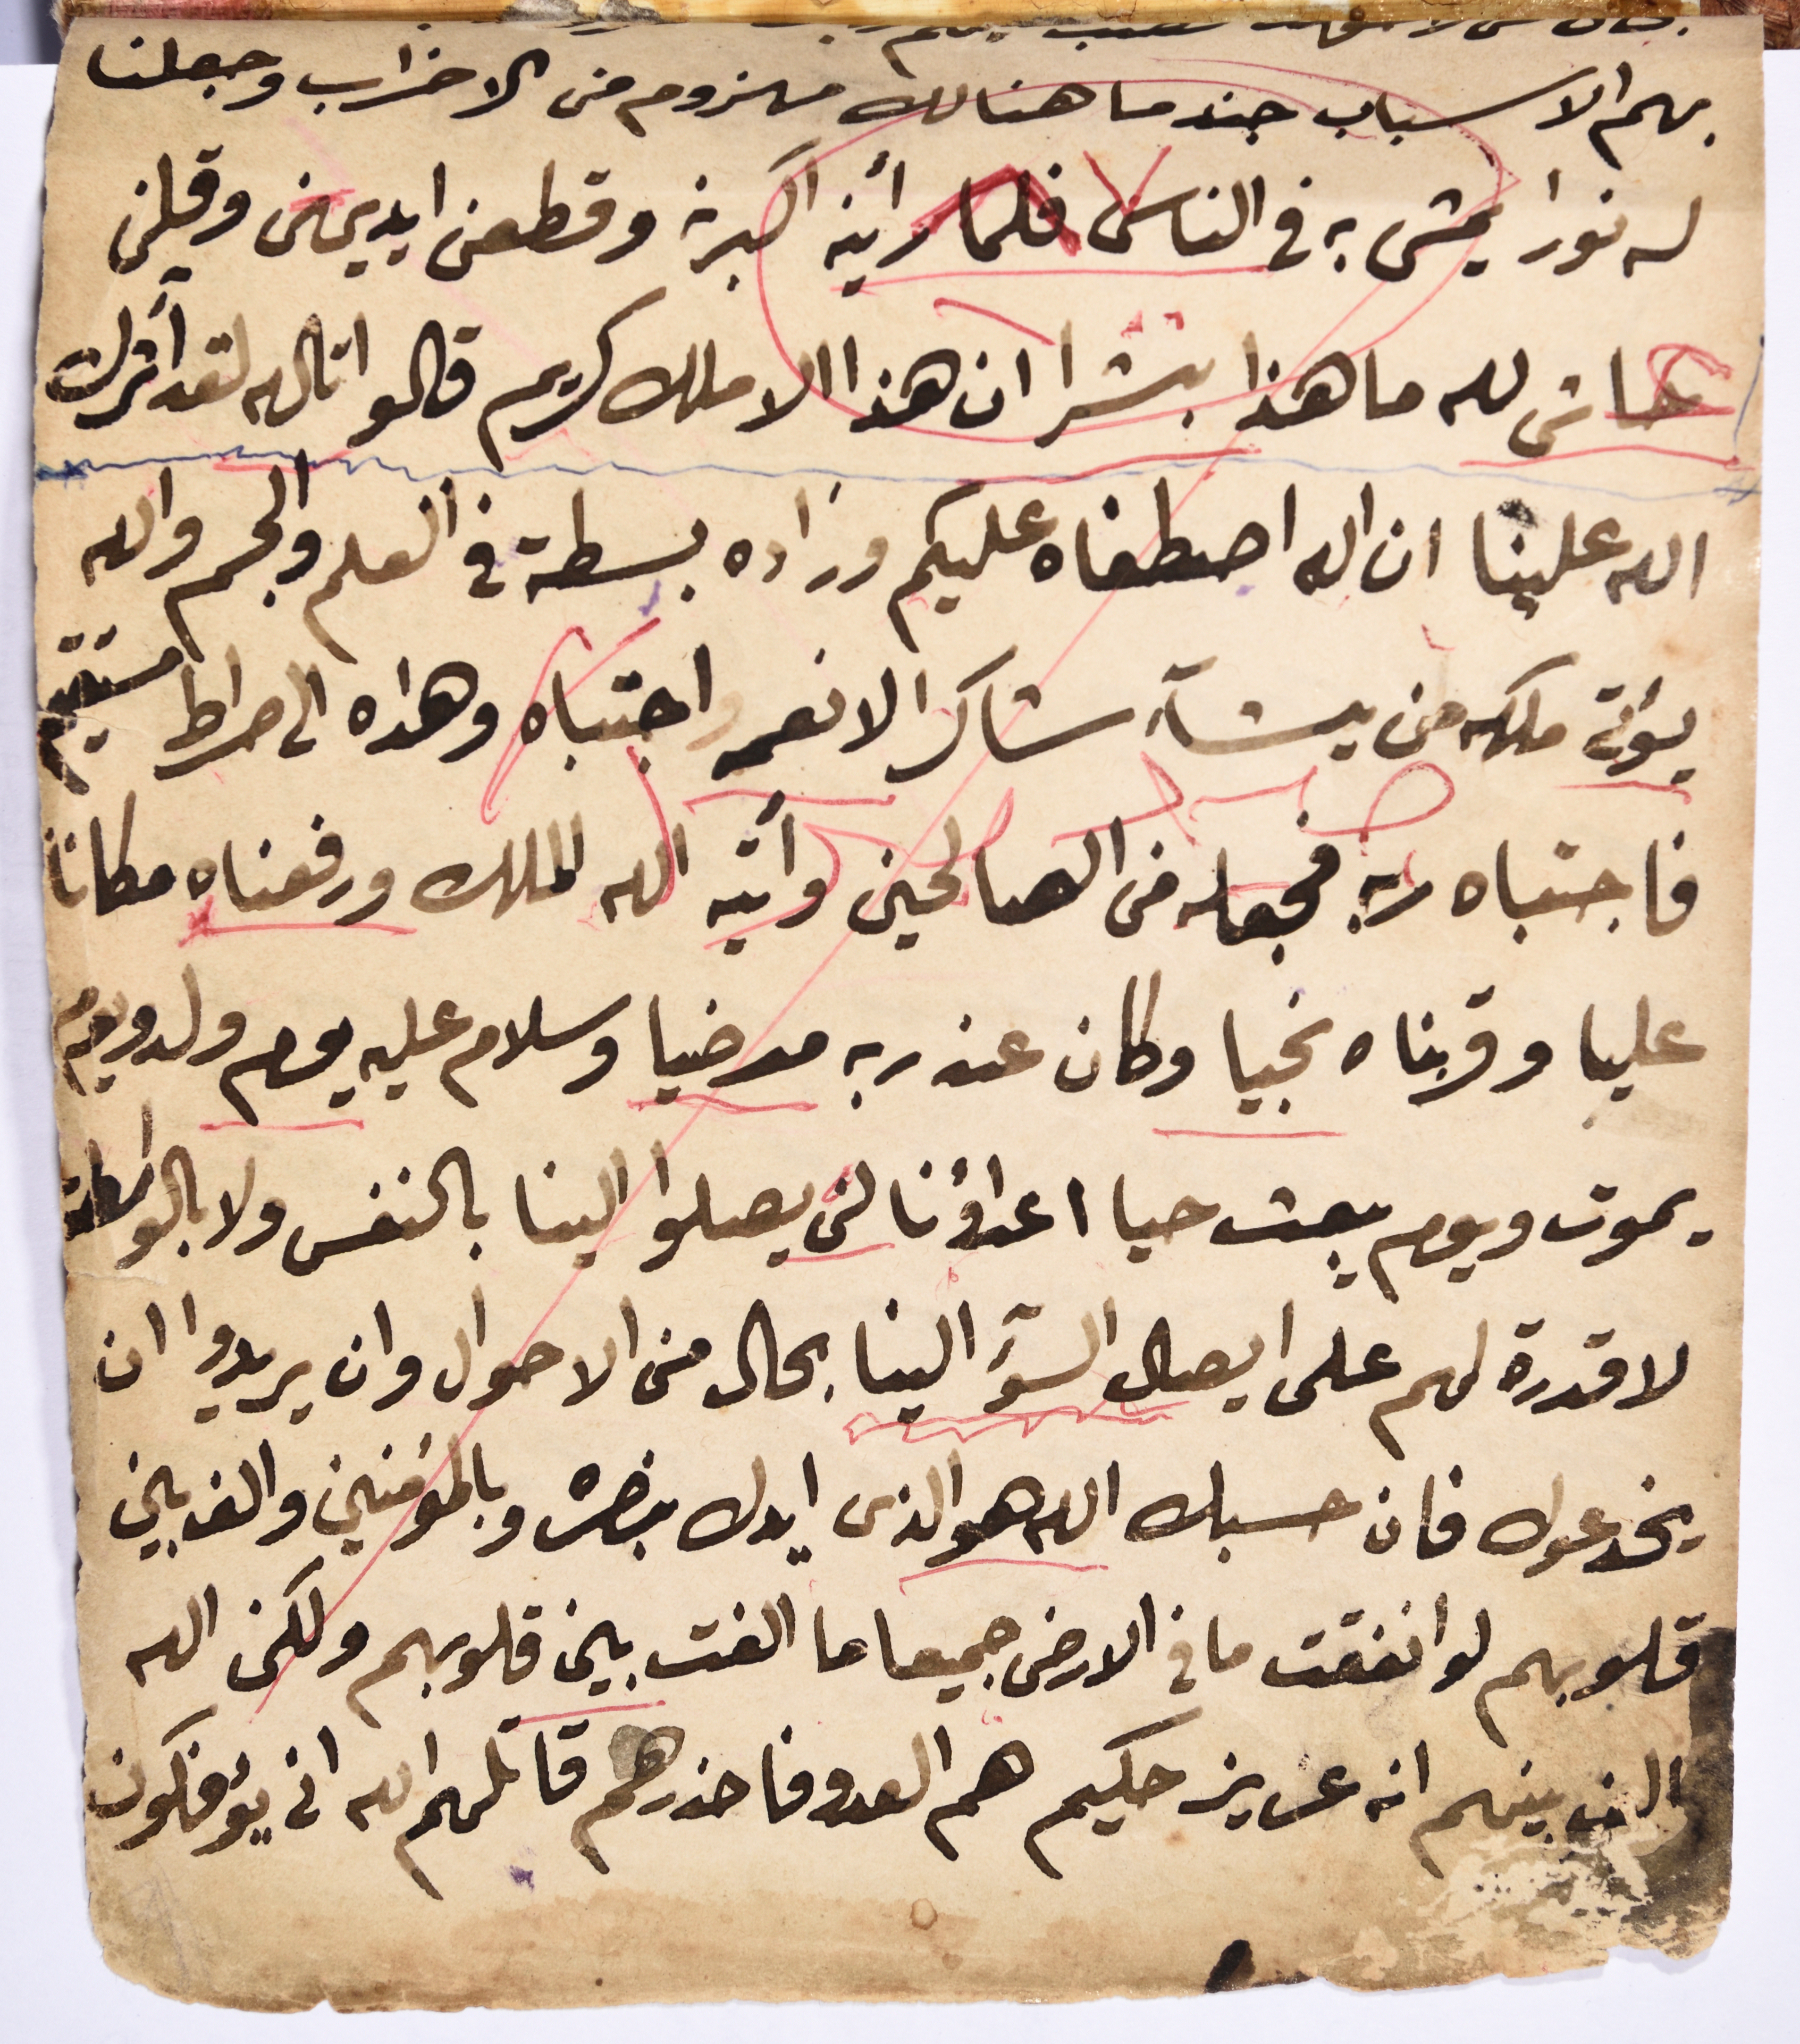 بهم الاسباب جند ما هنالك مهزوم من الاحزاب وجعلنا
له نورا يمشى به فى الناس فلما رأينه اكبرنه وقطعن ايديهن وقلن
حاش لله ما هذا بشرا ان هذا الا ملك كريم قالوا تالله لقد آثرك
الله علينا ان الله اصطفاه عليكم وزاده بسطة فى العلم والجسم والله
يؤتى ملكه من يشآء شاكرا لانعمه واجتباه وهداه الى صراط مستقيم
فاجتباه ربه فجعله من الصالحين وأتيه الله الملك ورفعناه مكانا
عليا وقربناه نجيا وكان عند ربه مرضيا وسلام عليه يوم ولد ويوم
يموت ويوم يبعث حيا اعداؤنا لن يصلوا الينا بالنفس ولا بالواسطة
لا قدرة لهم على ايصال السوٓء الينا بحال من الاحوال وان يريدوا ان
يخدعوك فان حسبك الله هو الذى ايدك بنصره وبالمؤمنين والف بين
قلوبهم لو انفقت ما فى الارض جميعا ما الفت بين قلوبهم ولكن الله
الف بينهم انه عزيز حكيم هم العدو فاحذرهم قاتلهم الله انى يؤفكون